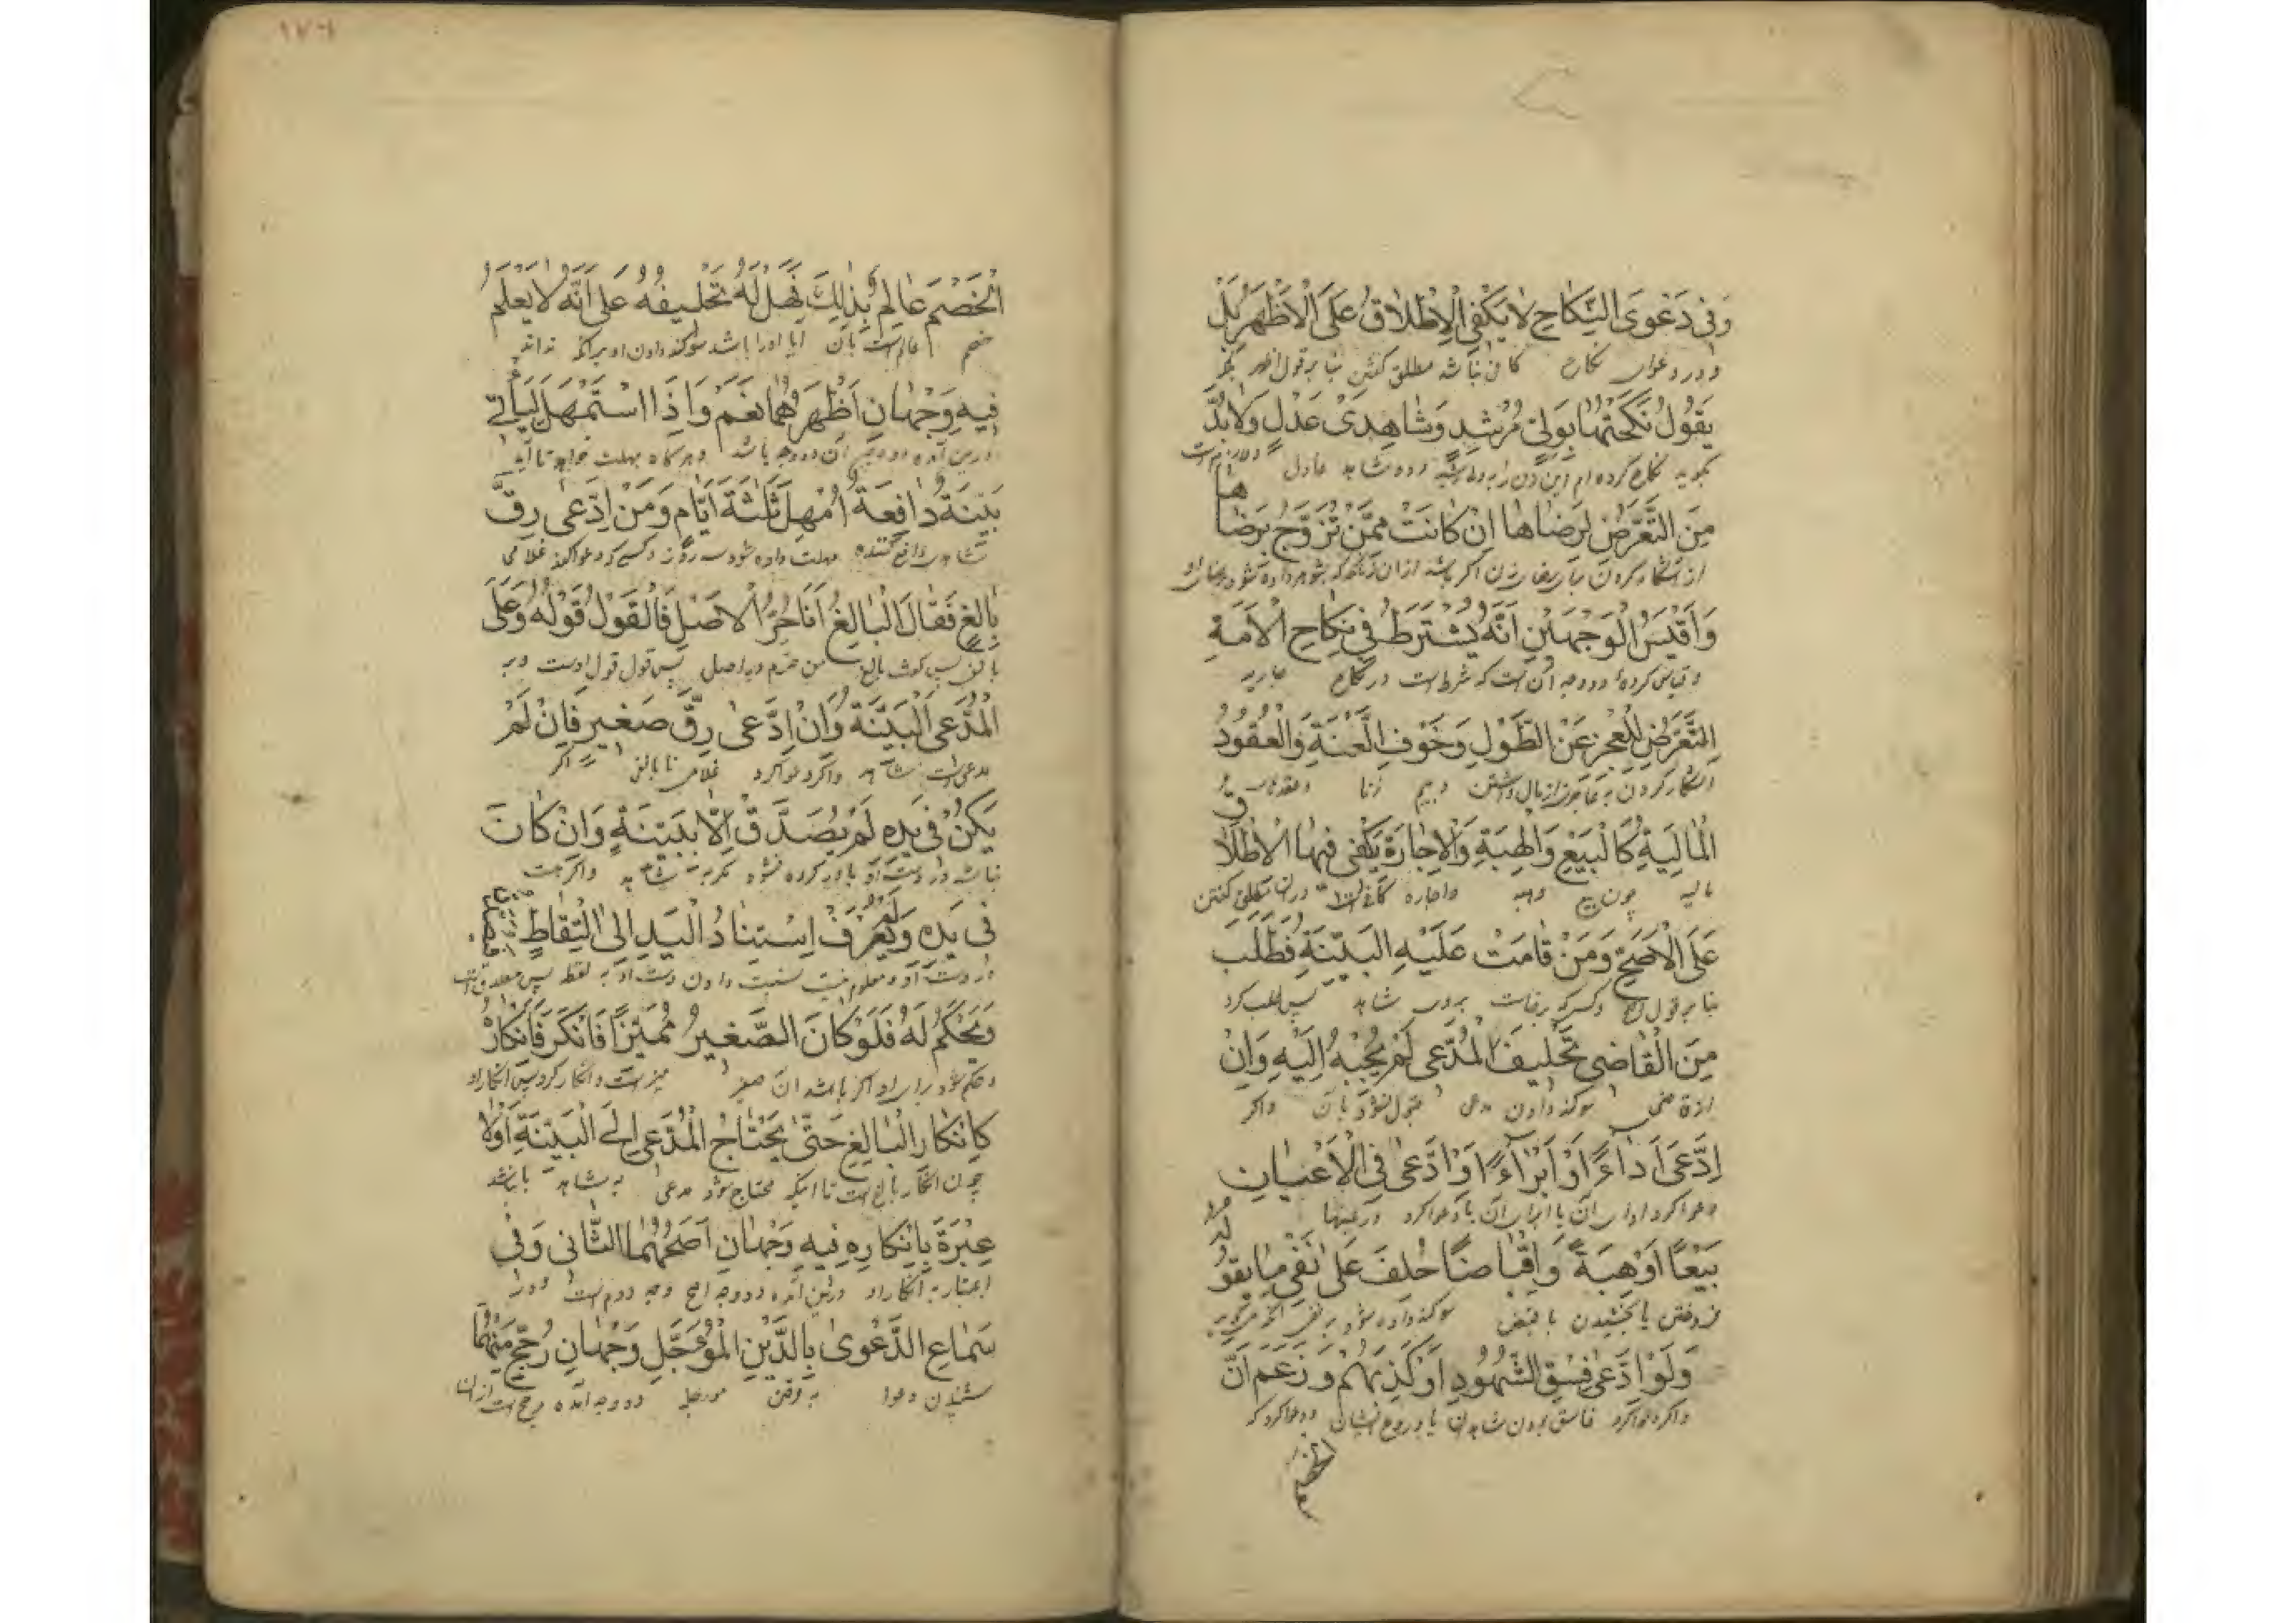 وَفِى دَعْوَى النِّكَاحِ لَا يَكْفِى الْاِطْلَاقُ عَلَى الْاَظْهَرِ بَلْ
و در دعوای نکاح کافی نباشد مطلق گفتن بنا بر قول اظهر بلکه
يَقُولُ نَكَحْتُهَا بِوَلِىٍّ مُرْشِدٍ وَشَاهِدَىْ عَدْلٍ وَلَا بُدَّ
بگوید نکاح کرده ام این زن را به ولی و دو شاهد عادل و لازم است
مِنَ التَّعَرُّضِ لِرِضَاهَا اِنْ كَانَتْ مِمَّنْ تُزَوَّجُ بِرِضَاهَا
از آشکار کردن رضای زن اگر باشد از آن زنی که بشوهر داده شود برضای او
وَاَقْيَسُ الْوَجْهَيْنِ اَنَّهُ يُشْتَرَطُ فِى نِكَاحِ الْاَمَةِ
و قیاس کرده دو وجه آن است که شرط است در نکاح جاریه
التَّعَرُّضِ لِلْعَجْزِ عَنِ الطَّوْلِ وَخَوْفِ الْعَنَةِ وَالْعُقُودُ
آشکار کردن به عاجز از مال داشتن و بیم زنا و عقدهای
الْمَالِيَةِ كَالْبَيْعِ وَالْهِبَةِ وَالْاِجَارَةِ يَكْفِى فِيهَا الْاِطْلَاقُ
مالیه چون بیع و هبه و اجاره کافی است در آنها مطلق گفتن
عَلَى الْاَصَحِّ وَمَنْ قَامَتْ عَلَيْهِ الْبَيِّنَةِ فَطَلَبَ
بنا بر قول اصح و کسی که برخاست بروی شاهد پس طلب کرد
مِنَ الْقَاضِى تَحْلِيفَ الْمُدَّعِى لَمْ يُجِبْهُ اِلَيْهِ وَاِنْ
از قاضی سوگند دادن مدعی قبول نشود بآن و اگر
اِدَّعَى اَدَاءً اَوْ اِبْرَاءً اَوْ ادَّعَى فِى الْاَعْيَانِ
دعوا کرد ادای آن یا ابرای آن یا دعوا کرد در عینها
بَيْعًا اَوْ هِبَةً وَاِقْبَاضًا حُلِّفَ عَلَى نَفْىِ مَا يَقُولُهُ
فروختن یا بخشیدن با قبض سوگند داده شود بر نفی آنچه میگوید
وَلَوْ ادَّعَى فِسْقَ الشُّهُودِ اَوْ كَذِبَهُمْ وَزَعَمَ اَنَّ
و اگر دعوا کرد فاسق بودن شاهدان یا دروغ ایشان و دعوا کرد که
الخصم
١٧٦
الْخَصْمَ عَالِمٌ بِذَلِكَ فَهَلْ لَهُ تَحْلِيفُهُ عَلَى اَنَّهُ لَا يَعْلَمُ
خصم عالم است بآن آیا او را باشد سوگند دادن او بر آنکه نداند
فِيهِ وَجْهَانِ اَظْهَرُهُمَا نَعَمْ وَاِذَا اسْتَمْهَلَ لِيَاْتِىَ
درین آمده دو وجه آن دو وجه باشد و هرگاه مهلت خواهد تا آید
بَيِّنَةً دَافِعَةً اُمْهِلَ ثَلَاثَةَ اَيَّامٍ وَمَنْ اِدَّعَى رِقَّ
شاهد دافع کننده مهلت داده شود سه روز و کسی که دعوا کند غلامی
بَالِغٍ فَقَالَ الْبَالِغُ اَنَا حُرُّ الْاَصْلِ فَالْقَوْلُ قَوْلُهُ وَعَلَى
بالغ پس گفت بالغ من حرم در اصل پس قول قول اوست و بر
الْمُدَّعِى الْبَيِّنَةُ وَاِنْ اِدَّعَى رِقَّ صَغِيرٍ فَاِنْ لَمْ
مدعی است شاهد و اگر دعوا کرد غلامی نابالغ اگر
يَكُنْ فِى يَدِهِ لَمْ يُصَدَّقْ اِلَّا بِبَيِّنَةٍ وَاِنْ كَانَ
نباشد در دست او باور کرده نشود مگر به شاهد و اگر هست
فِى يَدِهِ وَلَمْ يُعْرَفْ اِسْتِنَادُ الْيَدِ اِلَى الْتِقَاطٍ
در دست او و معلوم نیست نسبت دادن دست او به لقطه پس مصدق است
وَيُحْكَمُ لَهُ فَلَوْ كَانَ الصَّغِيرُ مُمَيِّزًا فَاَنْكَرَ فَاِنْكَارُهُ
و حکم شود برای او اگر باشد آن صغیر ممیز است و انکار کرد پس انکار او
كَاِنْكَارِ الْبَالِغِ حَتَّى يَحْتَاجُ الْمُدَّعِى اِلَى الْبَيِّنَةِ اَوْلَا
چون انکار بالغ است تا اینکه محتاج شود مدعی به شاهد یا نباشد
عِبْرَةَ بِاِنْكَارِهِ فِيهِ وَجْهَانِ اَصَحُّهُمَا الثَّانِى وَفِى
اعتبار به انکار او درین آمده دو وجه اصح وجه دوم است و در
سَمَاعِ الدَّعْوَى بِالدَّيْنِ الْمُؤَجَّلِ وَجْهَانِ رُجِّحَ مِنْهُمَا
شنیدن دعوا به قرض مؤجل دو وجه آمده مرجح است از آنها